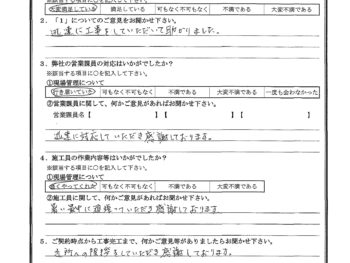 ※該当する項目に○を記入して下さい。
大変満足している 満足している 可もなく不可もなく 不満である 大変不満である
2.「1」についてのご意見をお聞かせ下さい。
迅速に工事をしていただいて助かりました。
3.弊社の営業課員の対応はいかがでしたか?
※該当する項目に○を記入して下さい。
①現場管理について
行き届いている 可もなく不可もなく 不満である 大変不満である 一度も会わなかった
②営業課員に関して、何かご意見があればお聞かせ下さい。
営業課員名【 】【 】【
迅速に対応していただき感謝しております。
4.施工員の作業内容等はいかがでしたか?
※該当する項目に○を記入して下さい。
①現場管理について
良くやってくれた 可もなく不可もなく 不満である 大変不満である
②施工員に関して、何かご意見があればお聞かせ下さい。
暑い最中に頑張っていただき感謝しております
5.ご契約時点から工事完工まで、何かご意見等がありましたらお聞かせ下さい。
近所への挨拶をしていただき感謝しております。